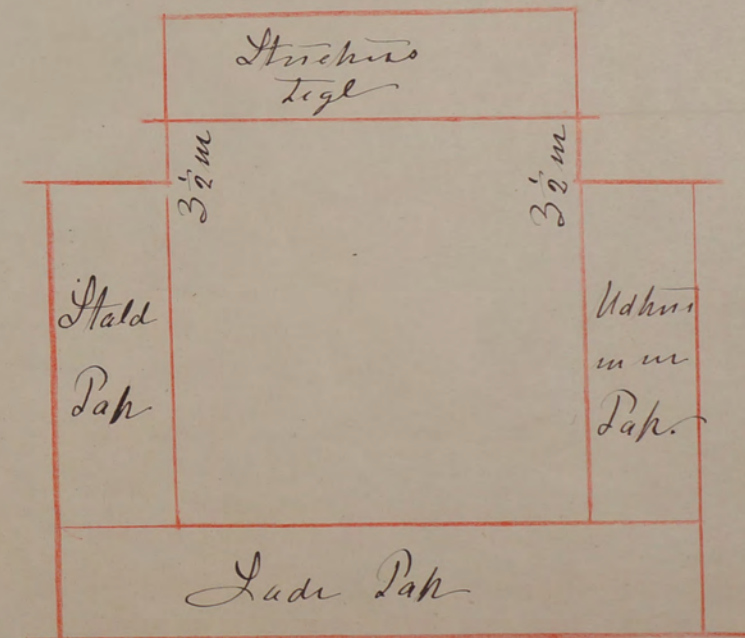 Stuehus
Tegl
3½ m
3½ m
Stald
Pap
Udhus
m m
Pap.
Lade Pap